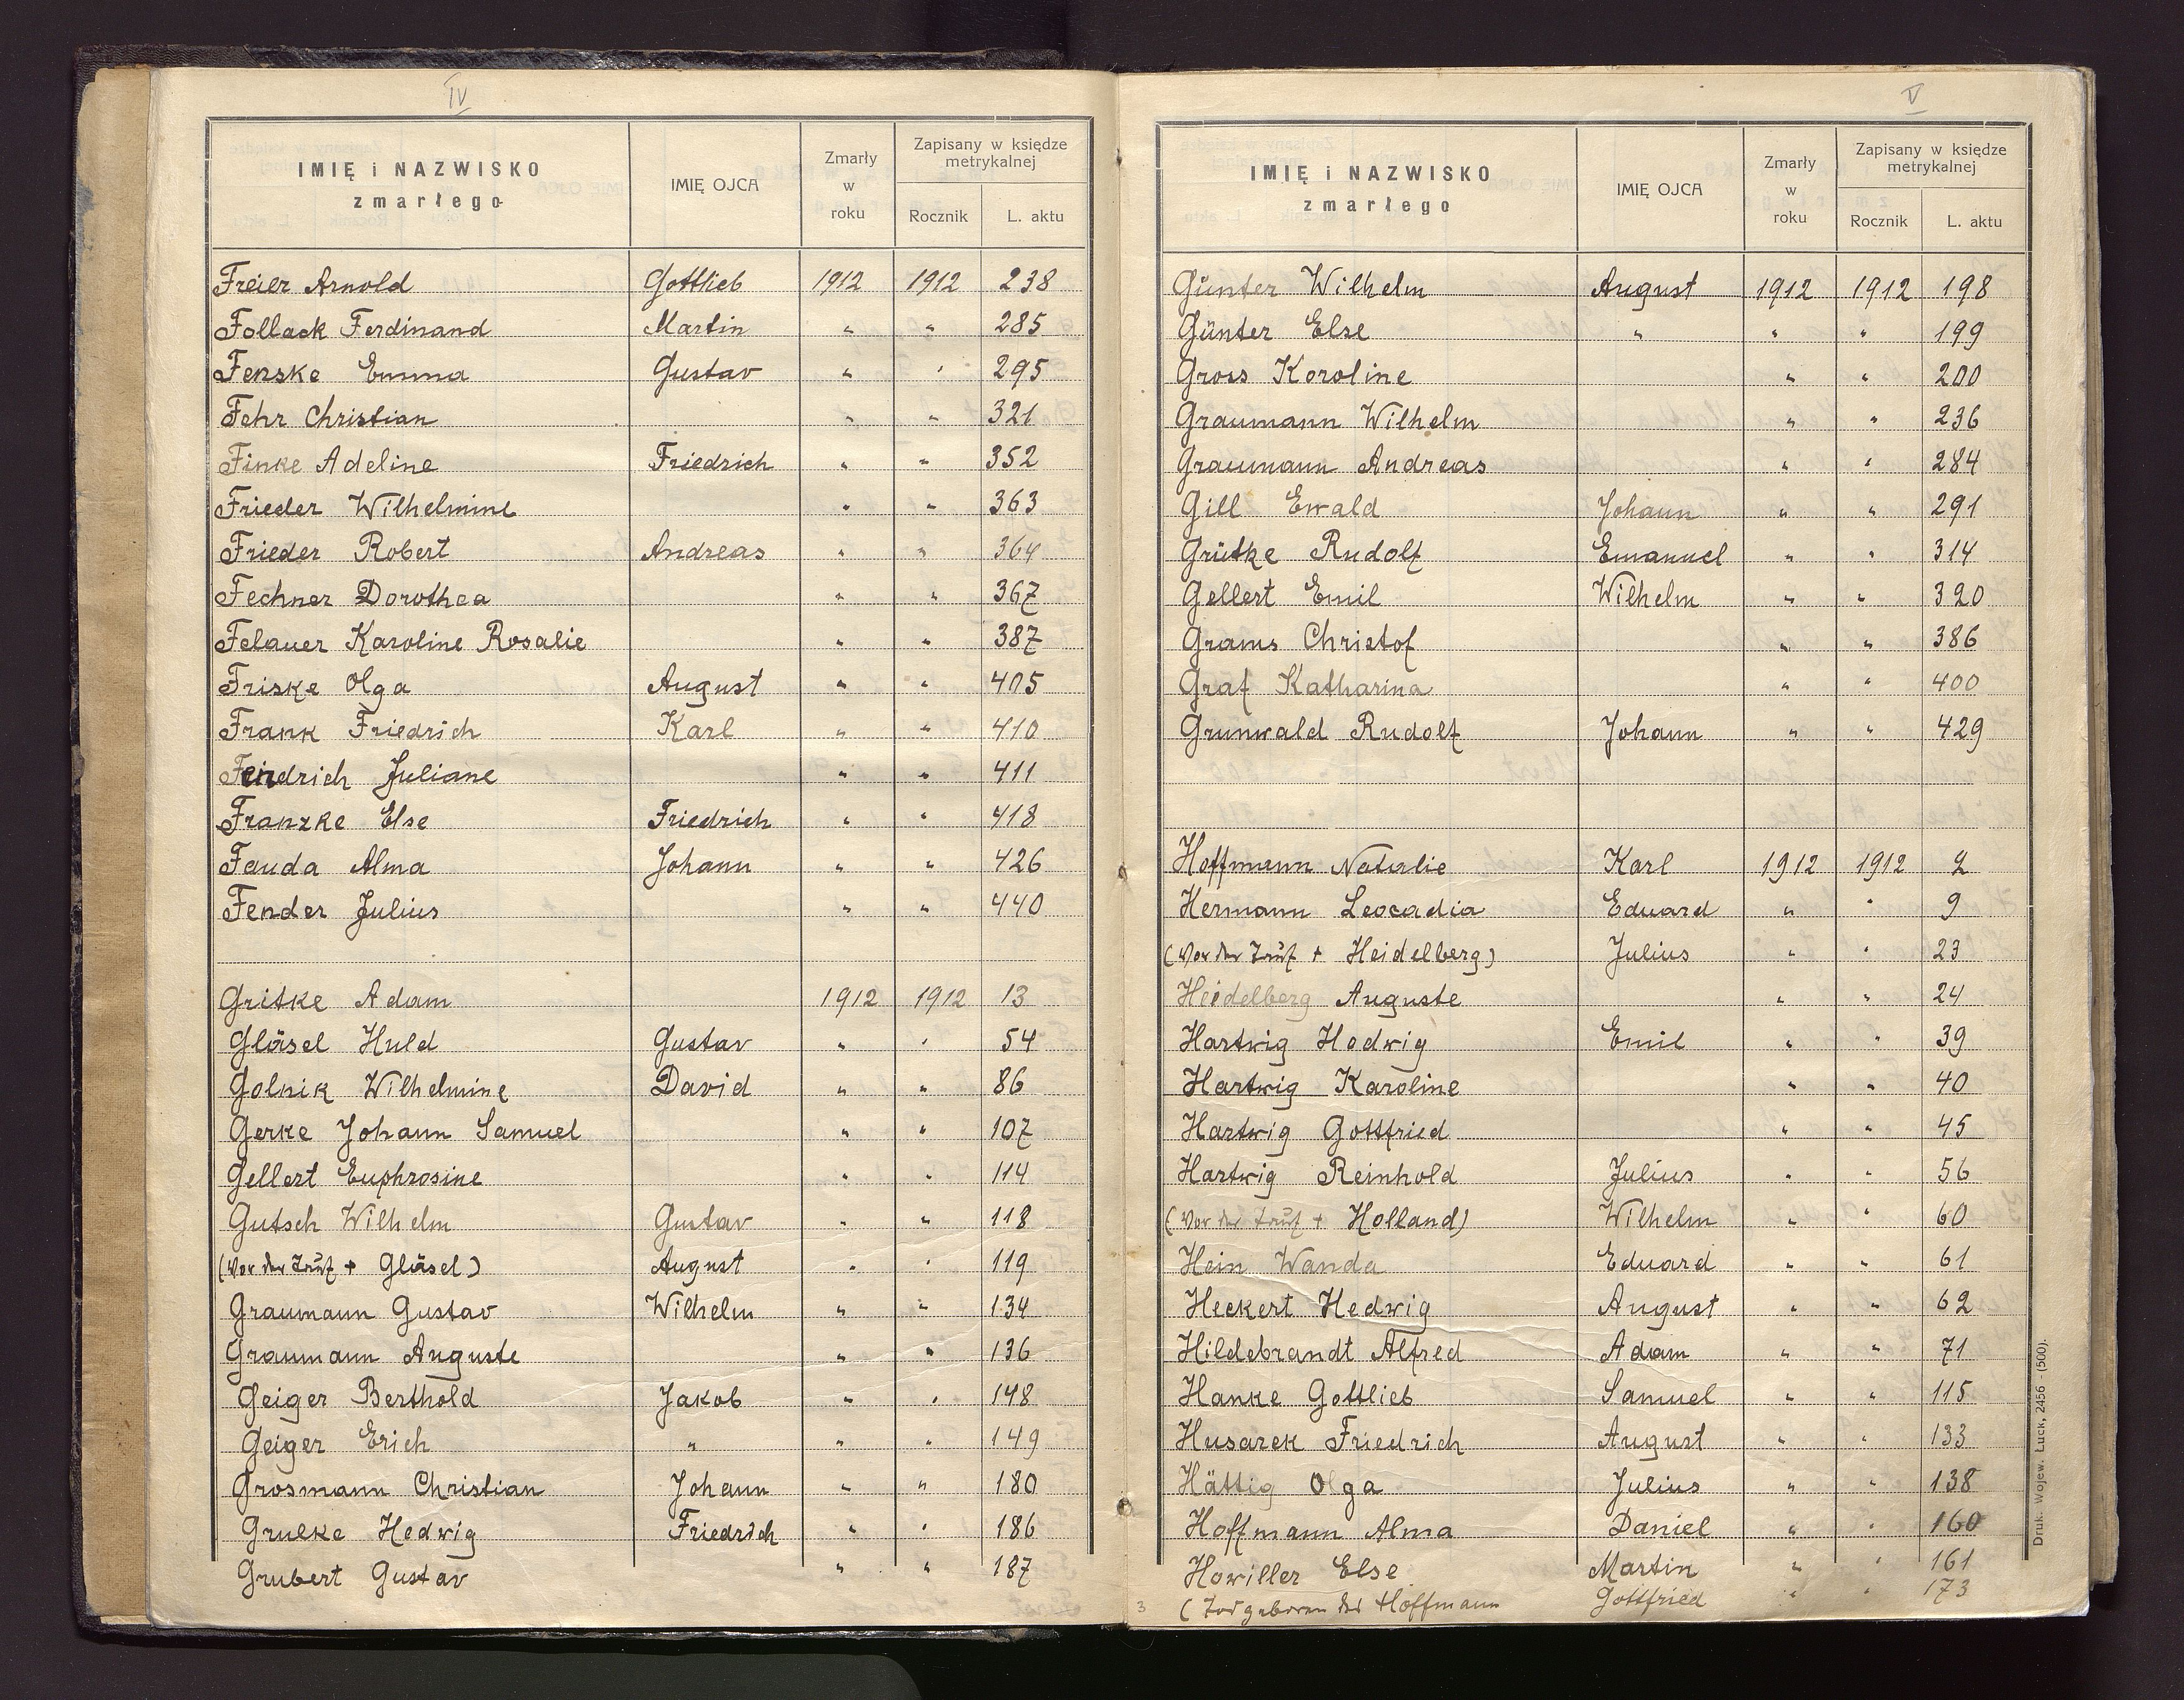 IV
IMIĘ i NAZWISKO zmarłego IMIĘ OJCA Zmarły w roku Zapisany w księdze metrykalnej Rocznik L. aktu
Freier Arnold Gottlieb 1912 1912 238
Follack Ferdinand Martin " " 285
Fenske Emma Gustav " " 295
Fehr Christian " " 321
Finke Adeline Friedrich " " 352
Frieder Wilhelmine " " 363
Frieder Robert Andreas " " 364
Fechner Dorothea " " 367
Felauer Karoline Rosalie " " 387
Friske Olga August " " 405
Frank Friedrich Karl " " 410
Feindrich Juliane " " 411
Franzke Else Friedrich " " 418
Fauda Alma Johann " " 426
Fender Julius " " 440
Gritke Adam 1912 1912 13
Gläsel Huld Gustav " " 54
Golnik Wilhelmine David " " 86
Gerke Johann Samuel " " 107
Gellert Euphrosine " " 114
Gutsch Wilhelm Gustav " " 118
(Vor der Tauf + Gläsel) August " " 119
Graumann Gustav Wilhelm " " 134
Graumann Auguste " " 136
Geiger Berthold Jakob " " 148
Geiger Erich " " " 149
Grosmann Christian Johann " " 180
Grulke Hedwig Friedrich " " 186
Grubert Gustav " " 187
V
IMIĘ i NAZWISKO zmarłego IMIĘ OJCA Zmarły w roku Zapisany w księdze metrykalnej Rocznik L. aktu
Günter Wilhelm August 1912 1912 198
Günter Else " " " 199
Gross Karoline " " 200
Graumann Wilhelm " " 236
Graumann Andreas " " 284
Gill Ewald Johann " " 291
Grütke Rudolf Emanuel " " 314
Gellert Emil Wilhelm " " 320
Grams Christof " " 386
Graf Katharina " " 400
Grunwald Rudolf Johann " " 429
Hoffmann Natalie Karl 1912 1912 2
Hermann Leocadia Eduard " " 9
(Vor der Tauf + Heidelberg) Julius " " 23
Heidelberg Auguste " " 24
Hartwig Hedwig Emil " " 39
Hartwig Karoline " " 40
Hartwig Gottfried " " 45
Hartwig Reinhold Julius " " 56
(Vor der Tauf + Holland) Wilhelm " " 60
Hein Wanda Eduard " " 61
Heckert Hedwig August " " 62
Hildebrandt Alfred Adam " " 71
Hanke Gottlieb Samuel " " 115
Husarek Friedrich August " " 133
Hättig Olga Julius " " 138
Hoffmann Alma Daniel " " 160
Howiller Else Martin " " 161
(Totgeboren des Hoffmann Gottfried " " 173
3
Druk. Wojew. Łuck, 2456 - (500).